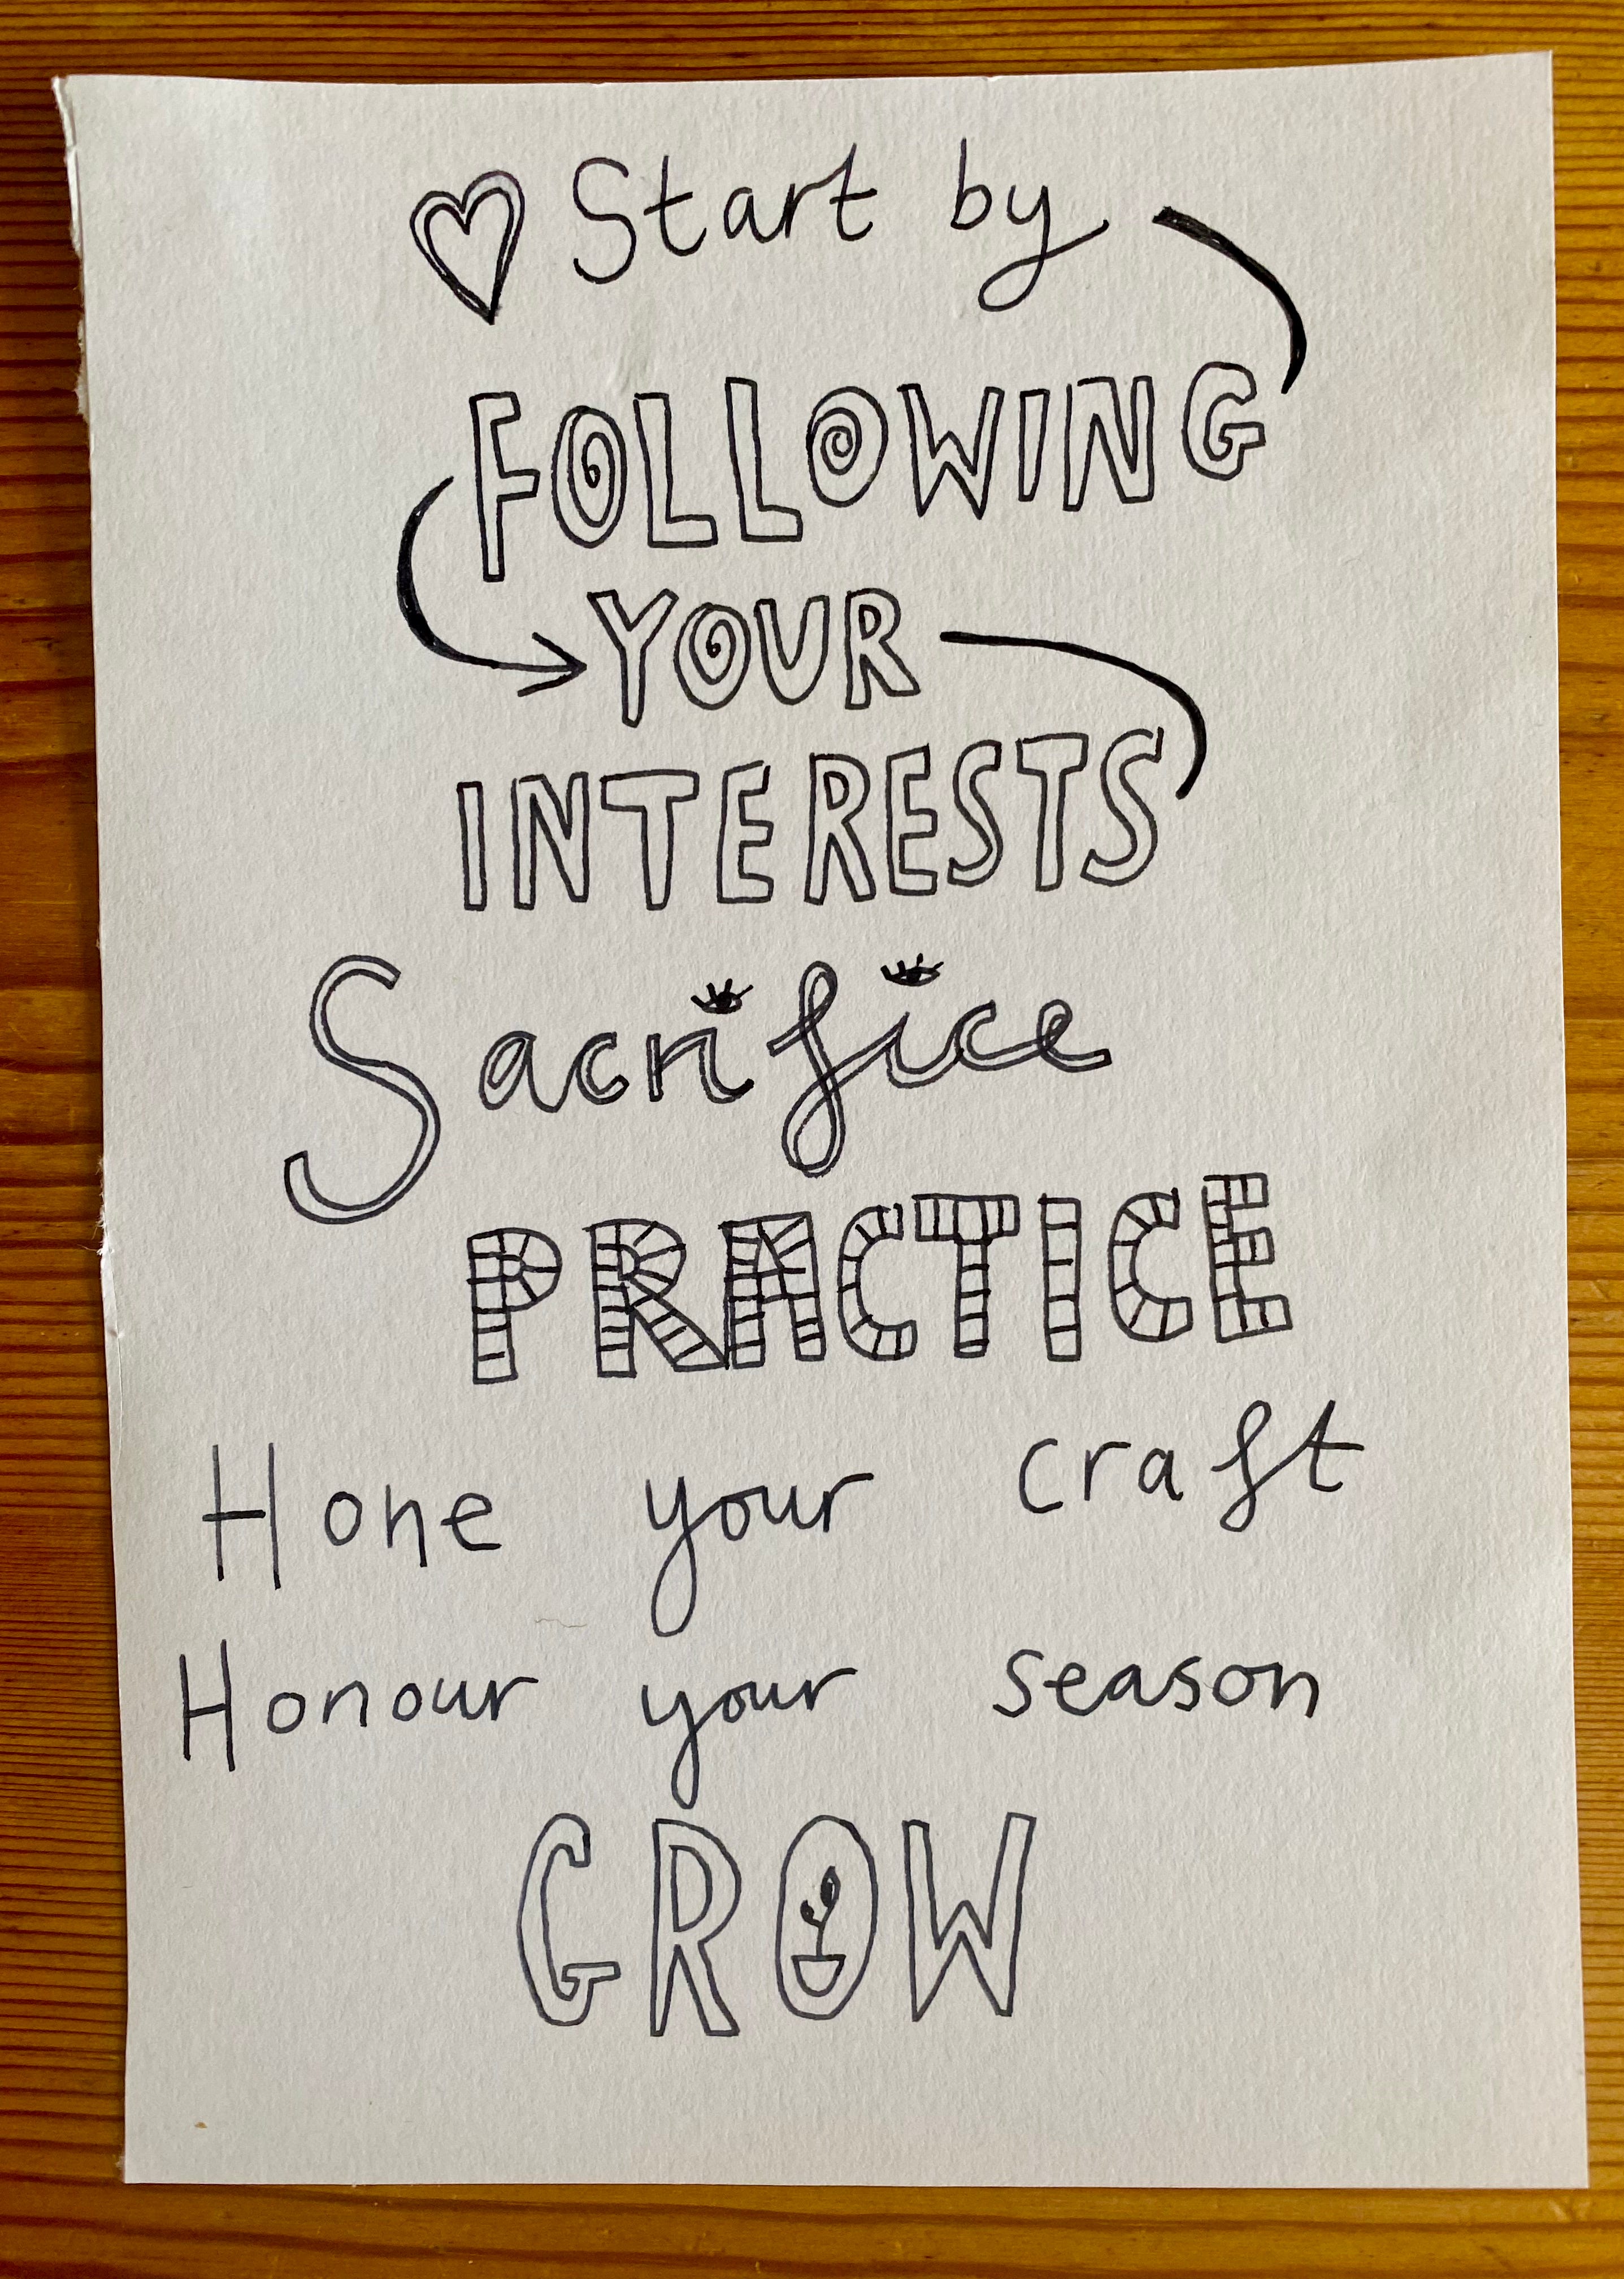 Start by
FOLLOWING
YOUR
INTERESTS
Sacrifice
PRACTICE
Hone your craft
Honour your season
GROW